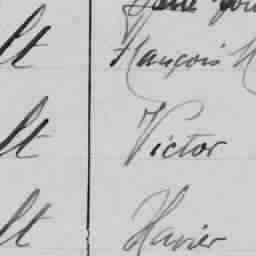 lt François
lt Victor
lt Xavier